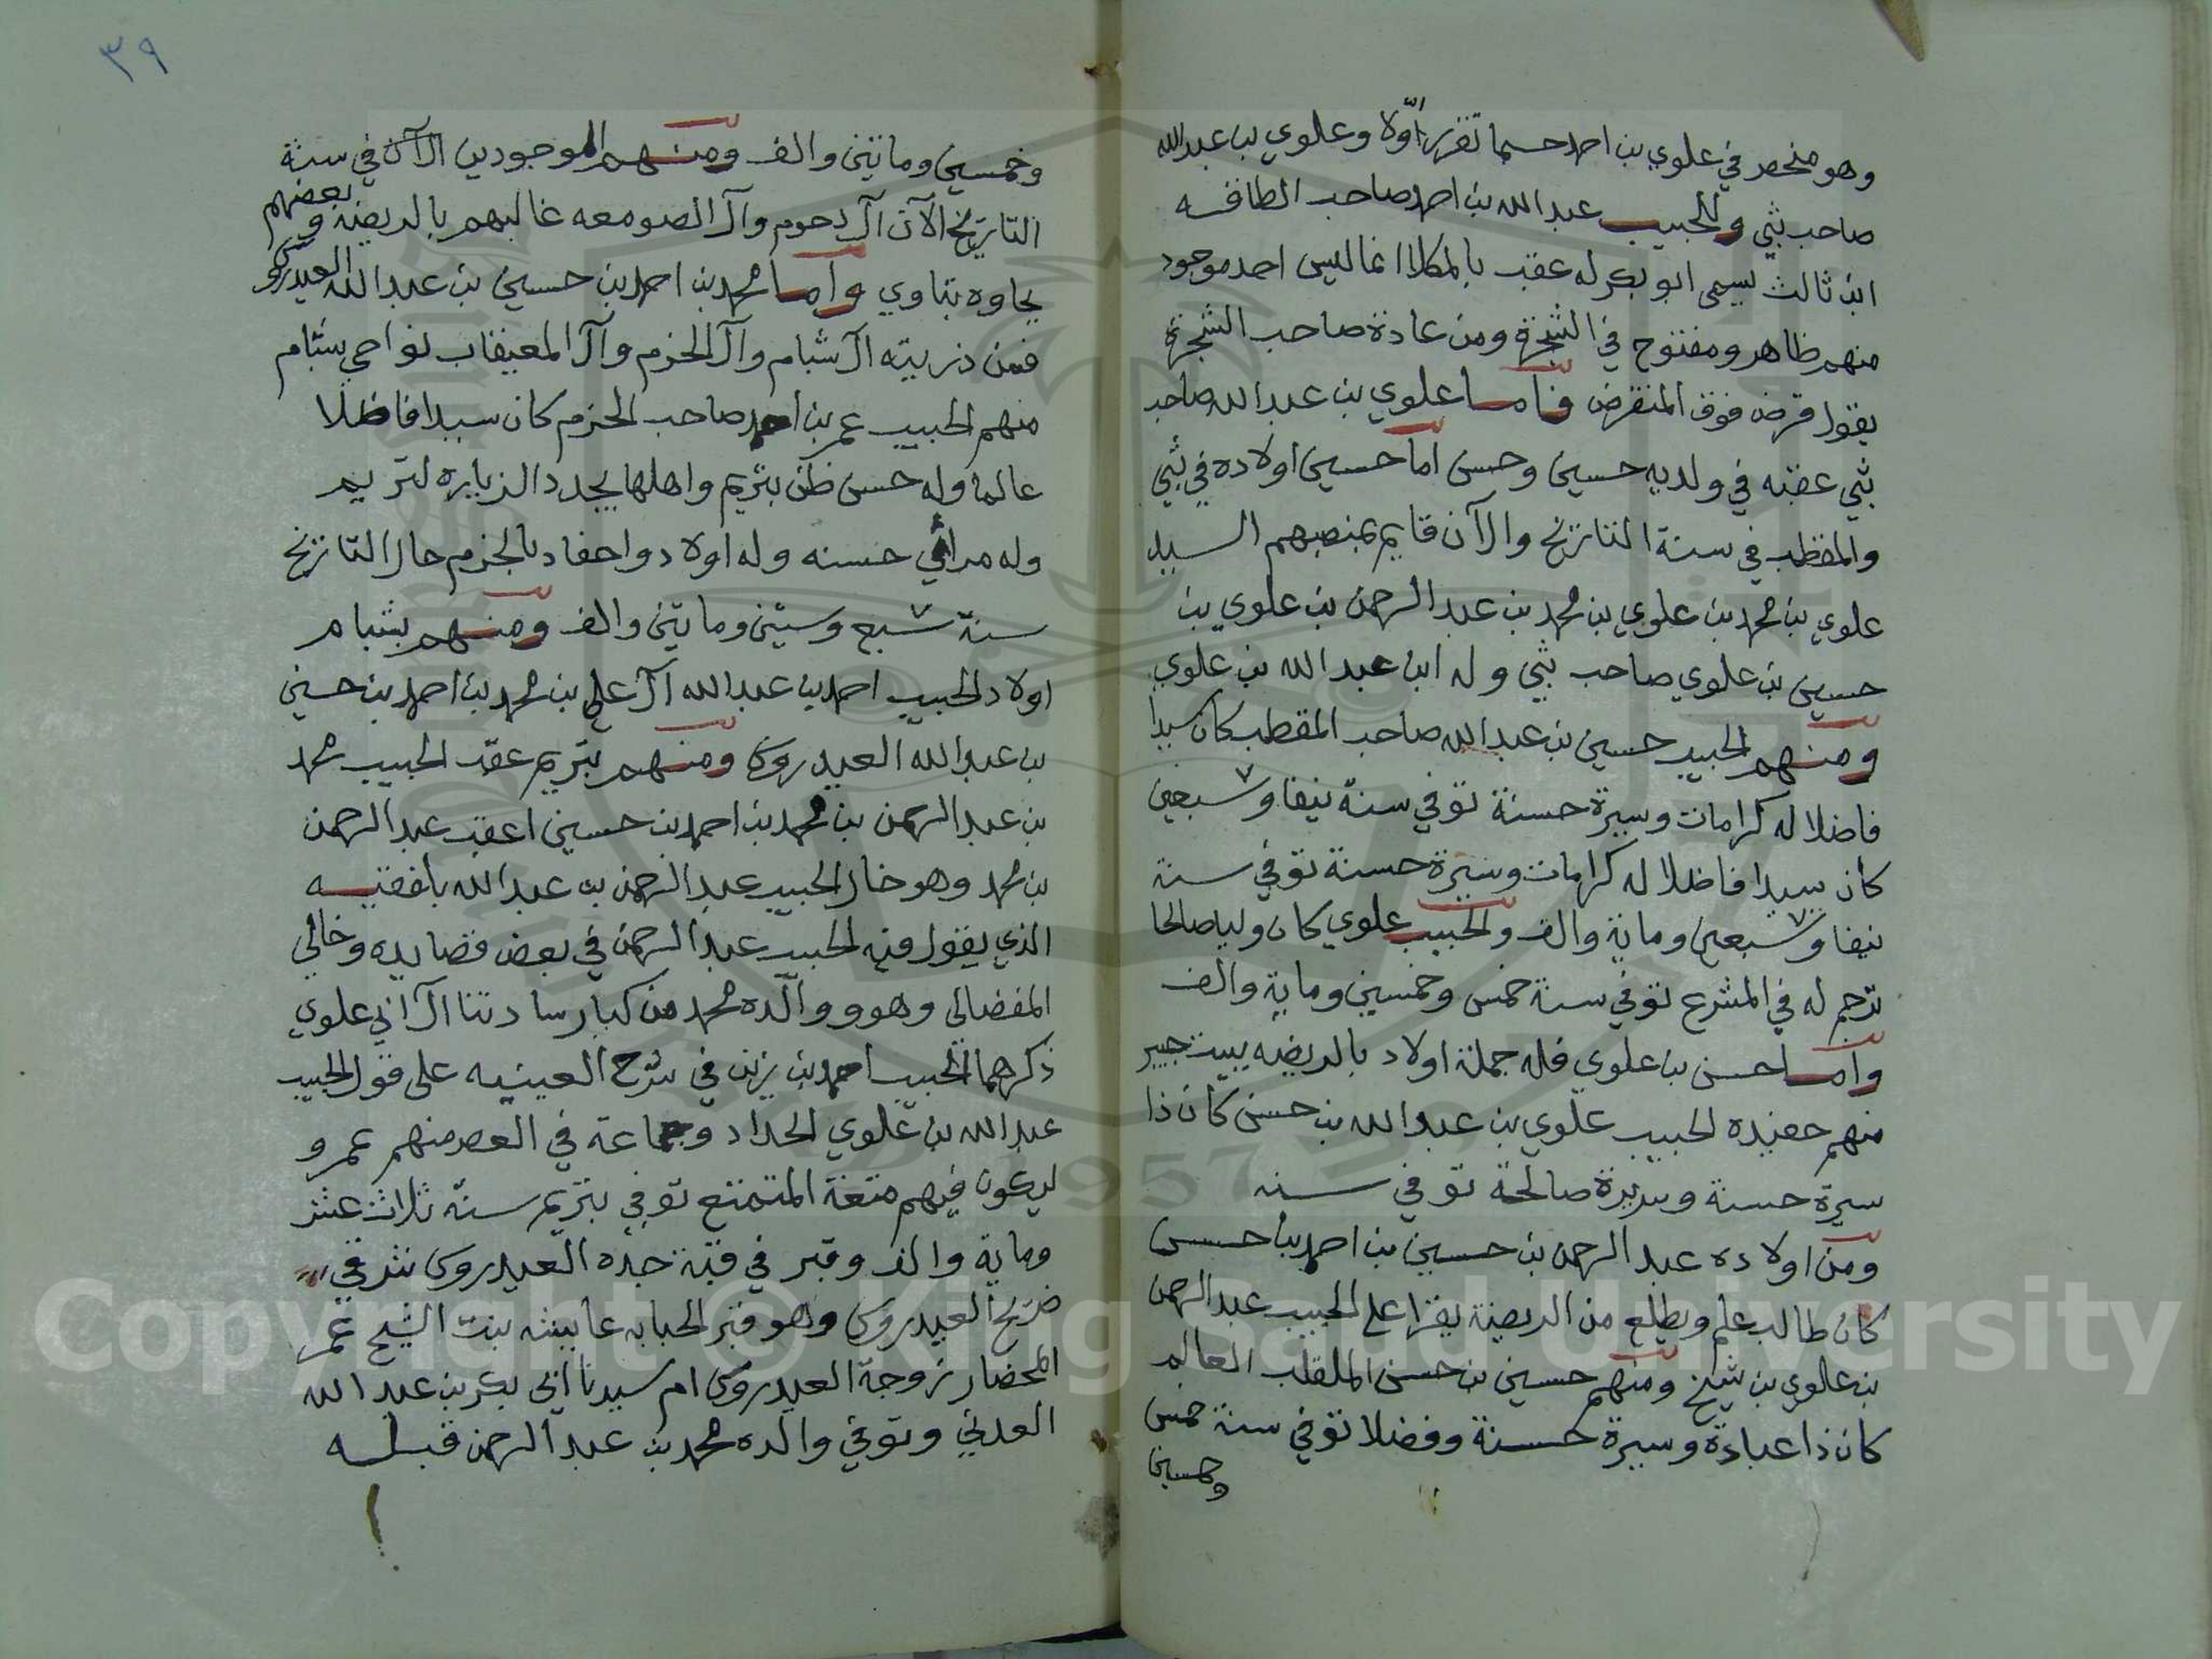 وهو منحصر في علوي بن احمد حسبما تقرر اوّلا وعلوي بن عبدالله
صاحب ثبي وللحبيب عبد الله بن احمد صاحب الطاقه
ابن ثالث يسمى ابو بكر له عقب بالمكلا انما ليس احد موجود
منهم ظاهر ومفتوح في الشجرة ومن عادة صاحب الشجرة
يقول قرض فوق المنقرض فاما علوي بن عبد الله صاحب
ثبي عقبه في ولديه حسين وحسن اما حسين اولاده في ثبي
والمقطب في سنة التاريخ والآن قايم بمنصبهم السيد
علوي بن محمد بن علوي بن محمد بن عبد الرحمن بن علوي بن
حسين بن علوي صاحب ثبي وله ابن عبد الله بن علوي
ومنهم الحبيب حسين بن عبد الله صاحب المقطب كان سيدا
فاضلا له كرامات وسيرة حسنة توفي سنة نيفا وسبعين
كان سيدا فاضلا له كرامات وسيرة حسنة توفي سنة
نيفا وسبعين وماية والف والحبيب علوي كان وليا صالحا
ترجم له في المشرع توفي سنة خمس وخمسين وماية والف
واما حسن بن علوي فله جملة اولاد بالريضه ببيت جبير
منهم حفيده الحبيب علوي بن عبد الله بن حسن كان ذا
سيرة حسنة وسريرة صالحة توفي سنه
ومن اولاده عبد الرحمن بن حسين بن احمد بن حسن
كان طالب علم ويطلع من الريضة يقرا على الحبيب عبد الرحمن
بن علوي بن شيخ ومنهم حسين بن حسن الملقب العالم
كان ذا عبادة وسيرة حسنة وفضلا توفي سنة خمس
وخمسين
٣٩
وخمسين ومائتين والف ومنهم الموجودين الآن في سنة
التاريخ الآن آل دحوم وآل الصومعه غالبهم بالريضة وبعضهم
بجاوه بتاوي واما محمد بن احمد بن حسين بن عبد الله العيدروس
فمن ذريته آل شبام وآل الحزم وآل المعيقاب نواحي شبام
منهم الحبيب عمر بن احمد صاحب الحزم كان سيدا فاضلا
عالما وله حسن ظن بتريم واهلها يجدد الزياره لتريم
وله مرائي حسنه وله اولاد واحفاد بالحزم حال التاريخ
سنة سبع وستين ومايتين والف ومنهم بشبام
اولاد الحبيب احمد بن عبد الله آل علي بن محمد بن احمد بن حسين
بن عبد الله العيدروس ومنهم بتريم عقب الحبيب محمد
بن عبد الرحمن بن محمد بن احمد بن حسين اعقب عبد الرحمن
بن محمد وهو خال الحبيب عبد الرحمن بن عبد الله بلفقيه
الذي يقول فيه الحبيب عبد الرحمن في بعض قصايده وخالي
المفضالي وهو ووالده محمد من كبار سادتنا آل ابي علوي
ذكرهما الحبيب احمد بن زين في شرح العينيه على قول الحبيب
عبد الله بن علوي الحداد وجماعة في العصر منهم عمرو
ليكون فيهم متعة المتمتع توفي بتريم سنة ثلاث عشر
وماية والف وقبر في قبة جده العيدروس شرقي
ضريح العيدروس وهو قبر الحبابه عايشه بنت الشيخ عمر
المحضار زوجة العيدروس ام سيدنا ابي بكر بن عبد الله
العدني وتوفي والده محمد بن عبد الرحمن قبله
Copyright © King Saud University
1957